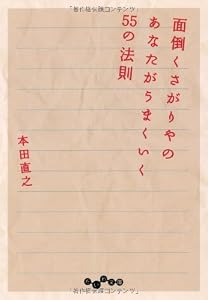 「著作権保護コンテンツ」
面倒くさがりやの
あなたがうまくいく
55の法則
本田直之
だいわ文庫
「著作権保護コンテンツ」